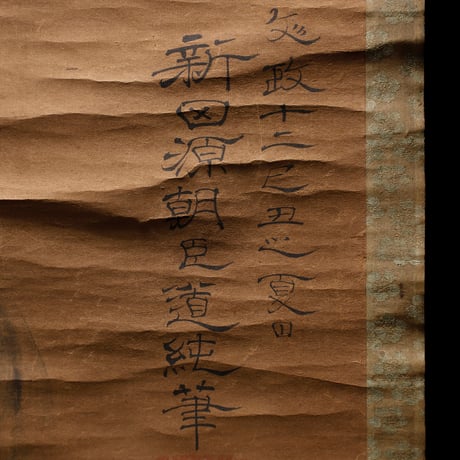 文政十二己丑之夏日
新田源朝臣道純筆